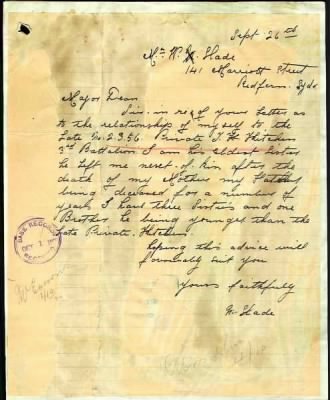 Sept 26th
Mrs W. Hade
141 Marriott Street
Redfern. Sydn
Major Dean
Sir. in re of your letter as
to the relationship of myself to the
Late No. 2356. Private T. H.
3rd Battalion I am his eldest sister
he left me next. of. kin after the
death of my Mother my Father
being deceased for a number of
years I have three sisters and one
Brother he being younger than the
late Private.
Hoping this advice will
suit you
Yours faithfully
W. Hade
BASE RECORDS
OCT 1